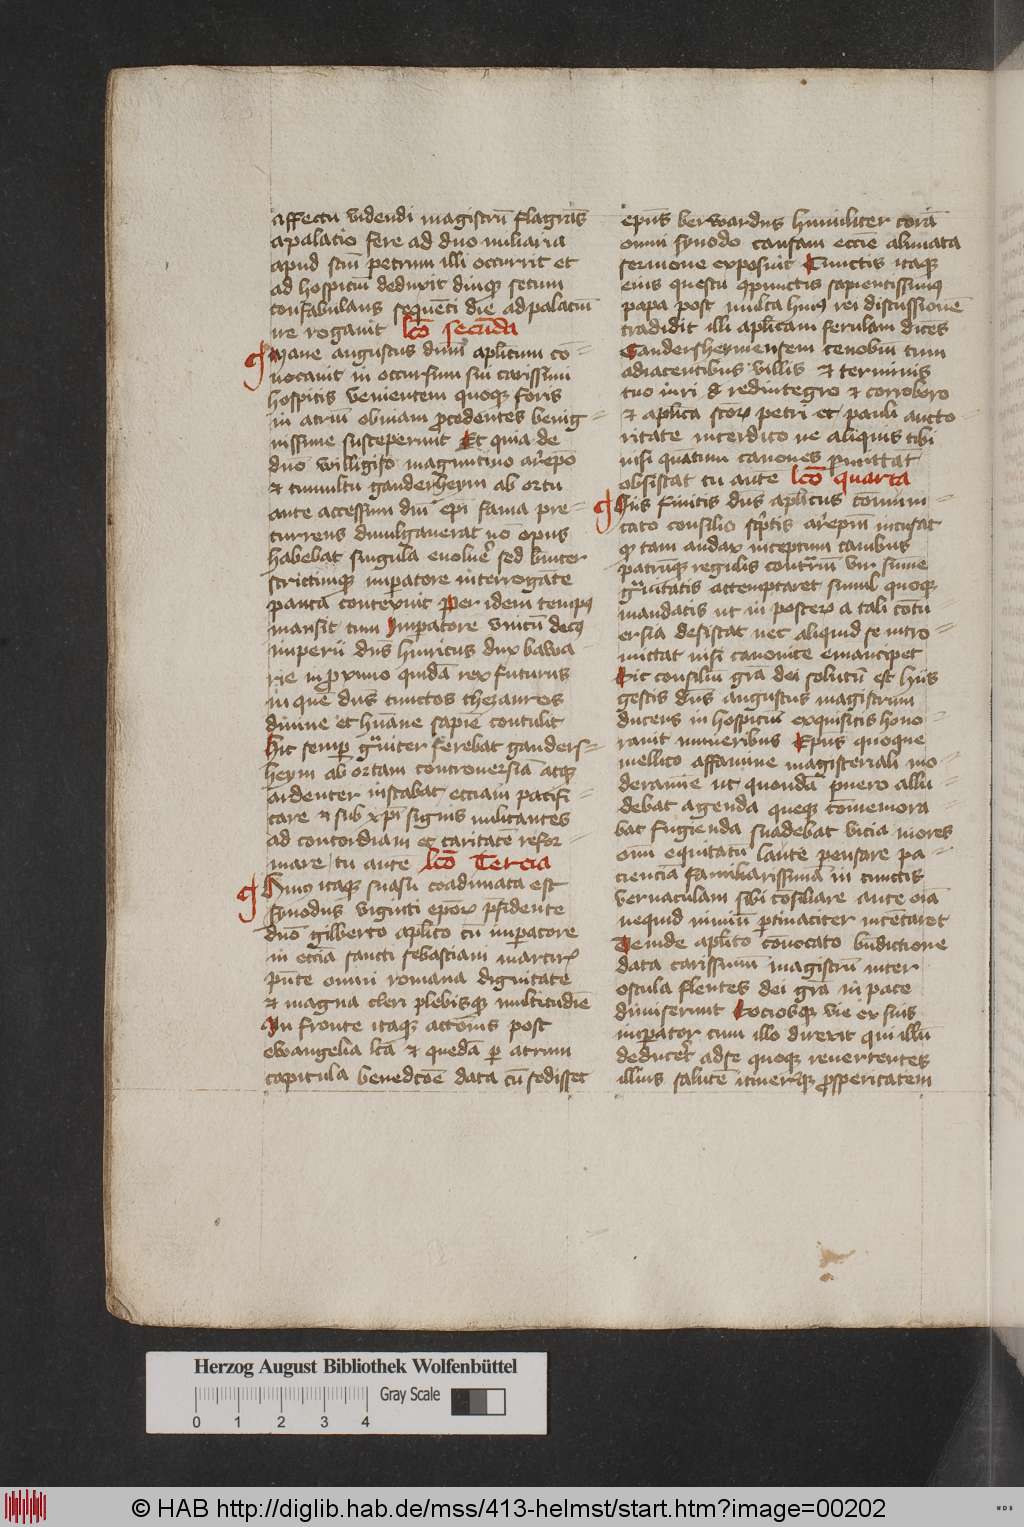 affectu videndi magistrū flagrās
apalatio fere ad duo miliaria
apud scm̄ petrum illi occurrit et
ad hospiciū deduxit diuq̄ secum
confabulans sequēti die ad palaciū
ire rogauit lcō secūda
Mane augustus dnm̄ aplicum cō-
uocauit in occursum sui carissimi
hospitis venientem quoq̄ foris
in atriū obuiam procedentes benig-
nissime susceperunt Et quia de
dnō willigiso maguntino arep̄o
et tumultu ganderheym ab ortu
ante accessum dni ep̄i fama pre-
currens diuulgauerat nō opus
habebat singula euoluere sed breuiter
strictimq̄ imperatore interrogāte
pauca contexuit Per idem tempus
mansit cum Imperatore vnicū decus
imperii dns̄ hinricus dux bawa
rie in proximo quidā rex futurus
in quē dns̄ cunctos thezauros
diuine et huāne sapiē contulit
hic semper grauiter ferebat ganders-
heym ab ortam controuersiā atq̄
ardenter instabat ecciam pacifi-
care et sub xpi signis militantes
ad concordiam et caritatē refor-
mare tu aute lcō Tercia
Huius itaq̄ suasu coadunata est
synodus viginti epor̄ presidente
dnō gilberto aplico cū imperatore
in eccia sancti sebastiani martiris
pn̄te omni romana dignitate
et magna cleri plebisq̄ multitudiē
In fronte itaq̄ actionis post
ewangelia lc̄a et quedā per atrium
capitula benedcōe data cū sedisset
epūs berwardus humiliter corā
omni synodo causam eccie alimata
sermone exposuit Cunctis itaq̄
eius questu cōpunctis sapientissimus
papa post multa huius rei discussionē
tradidit illi aplicam ferulam dices
Gandersheymensem cenobiū cum
adiacentibus villis et terminis
tuo iuri et redintegro et corroboro
et aplica scōr petri et pauli aucto
ritate interdico ne aliquis tibi
nisi quatum canones permittāt
obsistat tu autē lcō quarta
Hiis finitis dns aplicus cōmuni-
cato consilio scriptis arepm̄ increpat
q̄ tam audax inceptum canibus
patrūq̄ regulis contrariū vir sūme
grauitatis attemptaret simul quoq̄
mandatis ut in posterū a tali cōtu
ersia desistat nec aliquid se intro-
mittat nisi canonice emancipet
Sic consiliū grā dei solutū est hiis
gestis dns augustus magistrum
ducens in hospiciū exquisitis hono-
rauit muneribus Epūs quoque
mellito affamine magisteriali mo-
deramie ut quondā puero allu-
debat agenda queq̄ cōmemora-
bat fugienda suadebat vicia mores
om̄i equitatu laute pensare pa-
ciencia familiarissima in cunctis
vernaculam sibi cōsiliare ante oīa
nequid nimiū pertinaciter intēcaret
Deinde aplico cōuocato bn̄dictione
data carissimū magistrū inter
oscula flentes dei grā in pace
dimiserunt Sociosq̄ vie ex suis
imperator cum illo direxit qui illū
deducerēt ad se quoq̄ reuertentes
illius salutē itinerisq̄ prosperitatem
Herzog August Bibliothek Wolfenbüttel
0 1 2 3 4 Gray Scale
© HAB http://diglib.hab.de/mss/413-helmst/start.htm?image=00202
WDB